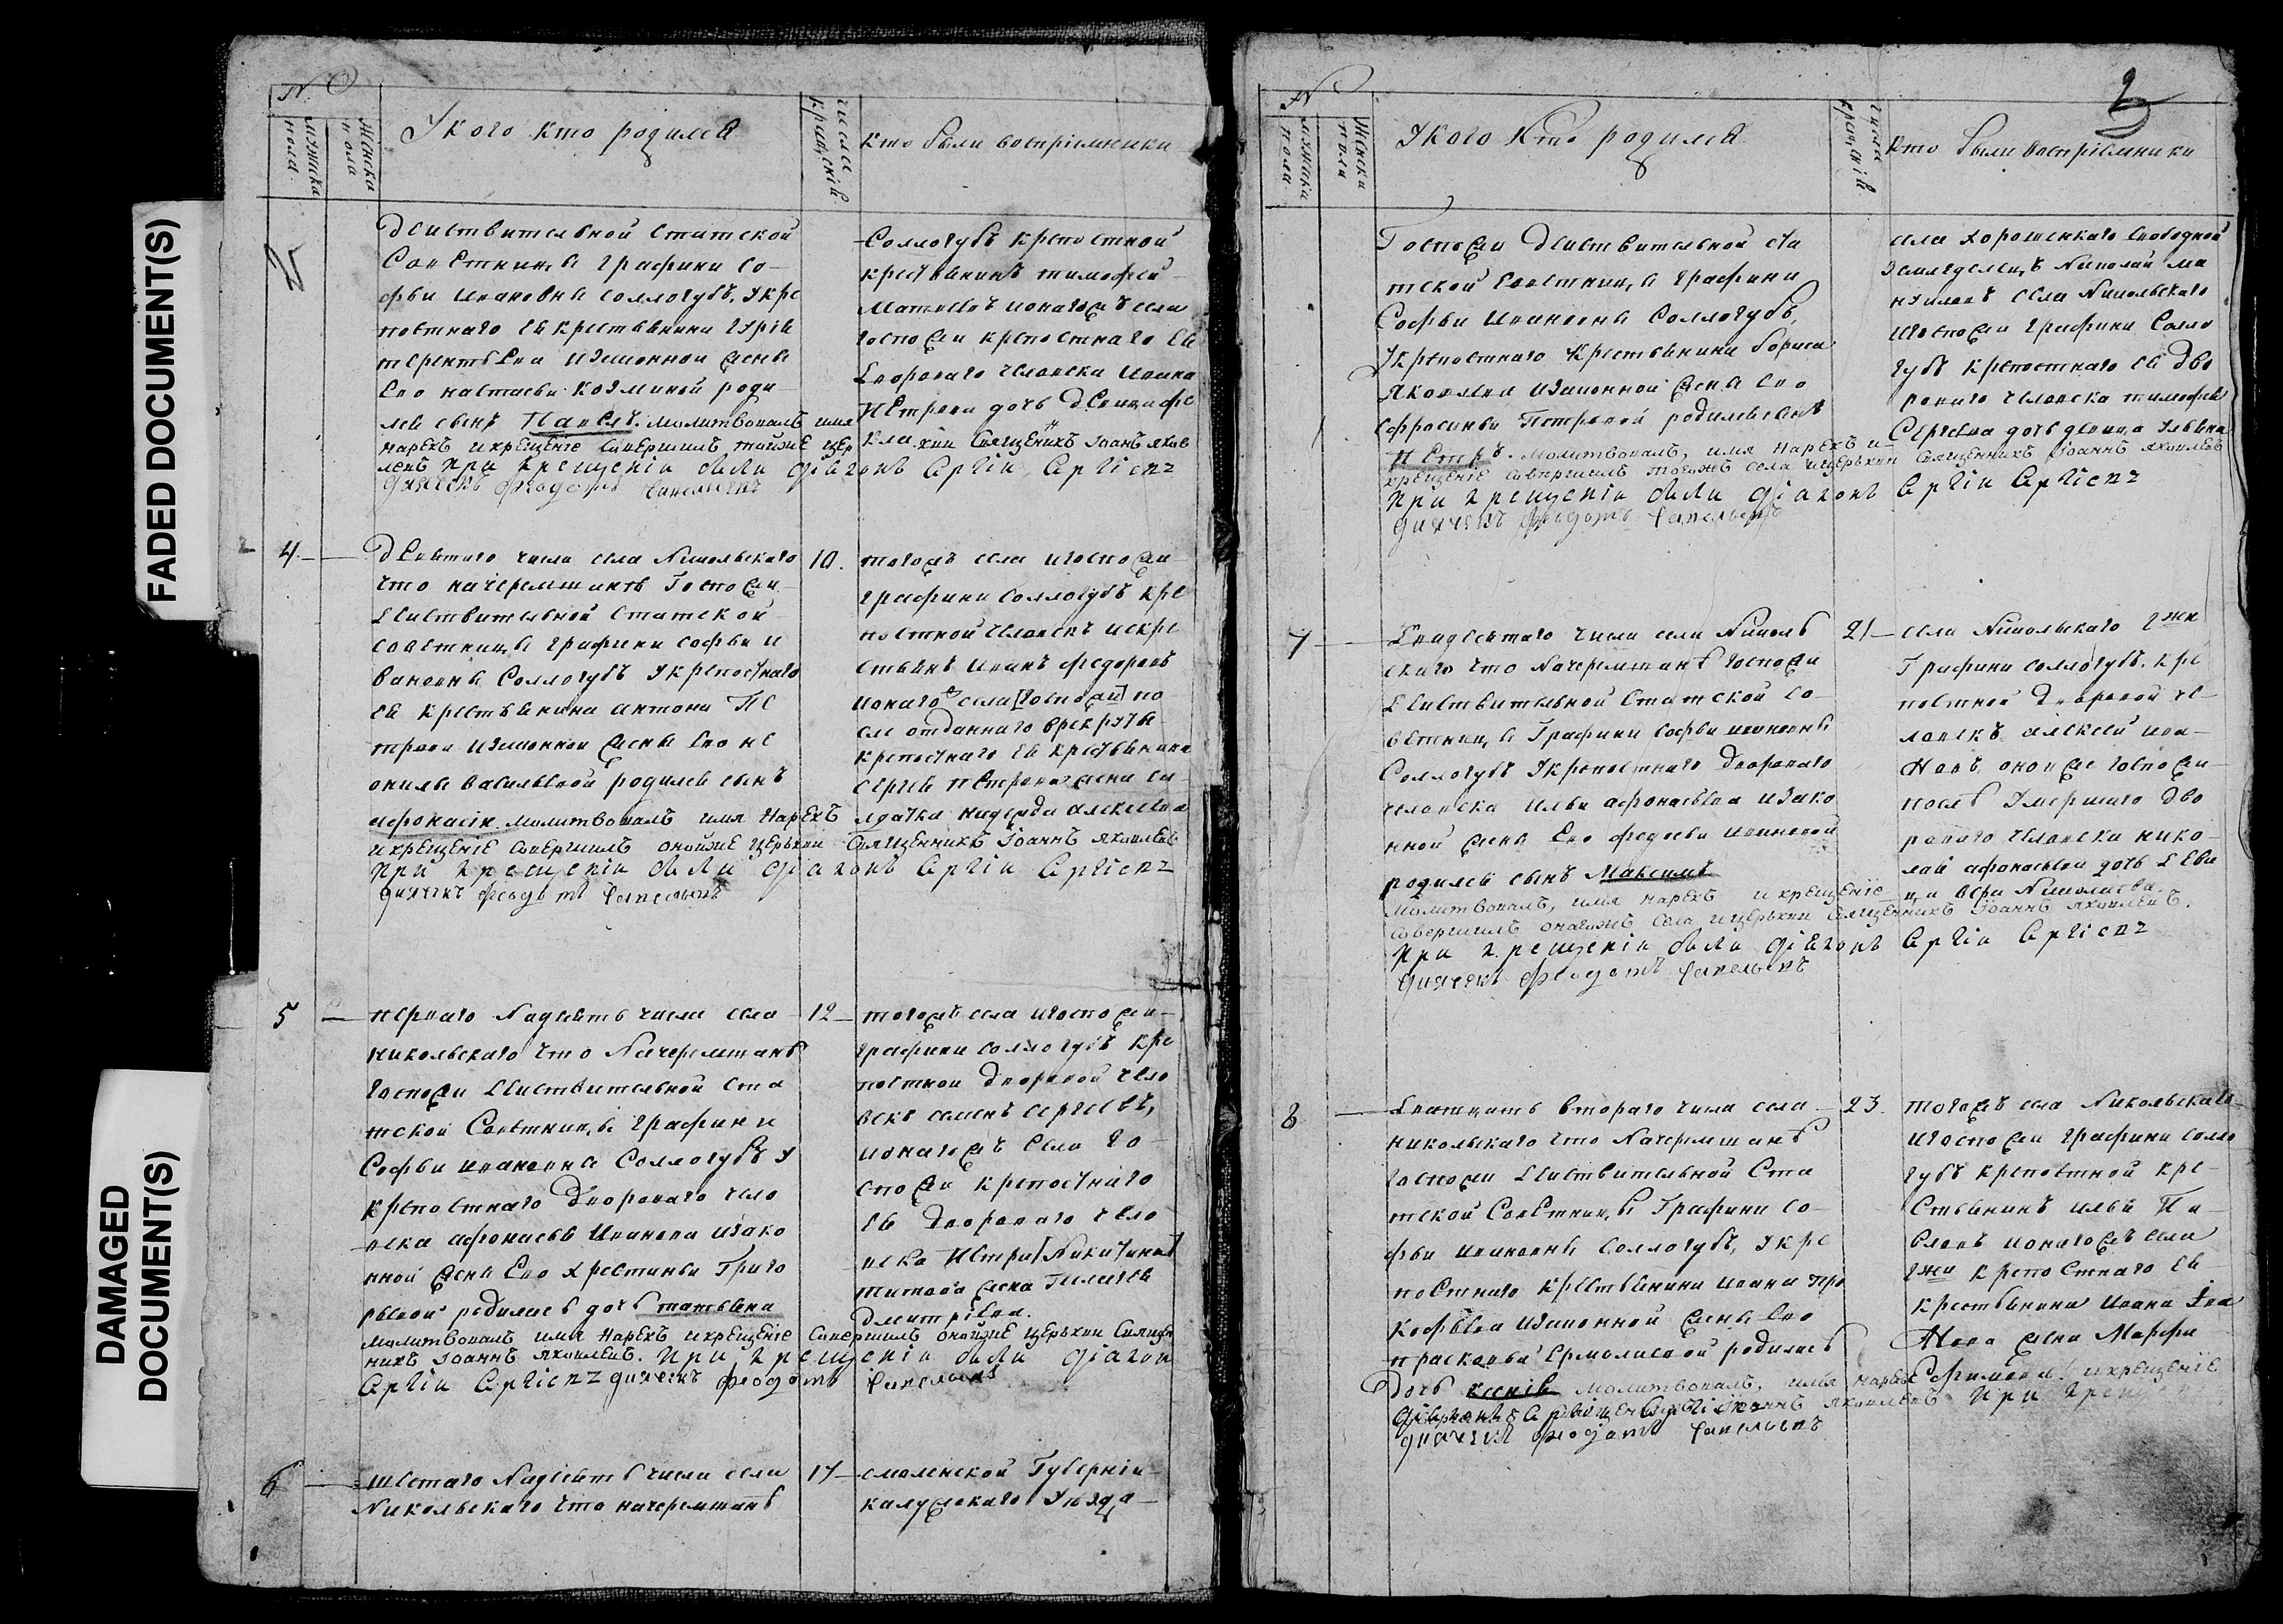 FADED DOCUMENT(S)
DAMAGED
DOCUMENT(S)
№
мужеска
пола
женска
пола
У кого кто родился
числа
крещенія
кто были воспріемники
Действительной статской
Советницы Графини Со-
фьи Ивановны Соллогубъ, у кре
постнаго ея крестьянина
изаконной жены
ево Настасьи Козминой роди
лся сынъ Павелъ. молитвовалъ имя
нарекъ и крещеніе совершилъ тойже цер
кви священникъ Іоаннъ Яков
левъ при крещеніи были діаконъ Сергій Сергіевъ
дьячекъ Феодотъ Савельевъ
Соллогубъ крепостной
крестьянинъ тимофей
Матвеевъ ионагожъ села
госпожи крепостнаго ея
дворового человека Ивана
Петрова дочь девица
4
Девятаго числа села Никольскаго
что начеремшане Госпожи
действительной Статской
советницы графини софьи и
вановны Соллогубъ у крепостнаго
ея крестьянина антона Пе
трова изаконной жены ево не
онилы васильевой родился сынъ
афонасій. молитвовалъ имя нарекъ
и крещеніе совершилъ онойже церькви священникъ Іоаннъ Яковлевъ
при крещеніи были діаконъ Сергій Сергіевъ
дьячекъ Феодотъ Савельевъ
10.
тогожъ села игоспожи
графини соллогубъ кре
постной человекъ искре
стьянъ Иванъ федоровъ
ионаго села [госпожи] по
сле отданнаго врекруты
крепостнаго ея крестьянина
сергея Петрова жена со
лдатка надежда алексеева
5
перваго Надесять числа села
никольскаго что Начеремшане
госпожи действительной Ста
тской Советницы графини
Софьи ивановны Соллогубъ у
крепостнаго Двороваго чело
века афонасья Иванова изако
нной жены Ево Христиньи Григо
рьевой родилась дочь татьяна
молитвовалъ имя нарекъ и крещеніе совершилъ онойже церькви Священ
никъ Іоаннъ Яковлевъ. при крещеніи были діаконъ
Сергій Сергіевъ дьячекъ Феодотъ Савельевъ
12
тогожъ села игоспожи
графини соллогубъ кре
постной дворовой чело
векъ семенъ сергеевъ,
ионагожъ села го
спожи крепостнаго
ея двороваго чело
века Петра [Никитина]
титова жена
Дмитріева.
6
шестаго Надесять числа села
Никольскаго что начеремшане
17
смоленской Губерніи
Уезда
2
№
мужеска
пола
женска
пола
У кого кто родился
числа
крещенія
кто были воспріемники
Госпожи Действительной ста
тской советницы графини
Софьи Ивановны Соллогубъ,
у крепостнаго крестьянина бориса
Яковлева изаконной жены ево
ефросиньи Петровой родился сынъ
Петръ. молитвовалъ, имя нарекъ и
крещеніе совершилъ тогожъ села ицерькви священникъ Іоаннъ Яковлевъ
при крещеніи были діаконъ Сергій Сергіевъ
дьячекъ Феодотъ Савельевъ
села свободной
Николай ма
села Никольскаго
игоспожи графини Солло
губъ крепостнаго ея дво
роваго человека тимофея
Сергеева дочь девица Ульяна
7
двадесятаго числа села Николь
скаго что Начеремшане госпожи
действительной Статской со
ветницы Графини Софьи ивановны
Соллогубъ у крепостнаго двороваго
человека Ильи афонасьева изако
нной жены Ево федосьи Ивановой
родился сынъ Максимъ
молитвовалъ, имя нарекъ и крещеніе
совершилъ онагожъ села ицерькви священникъ Іоаннъ Яковлевъ.
при крещеніи были діаконъ Сергій Сергіевъ
дьячекъ Феодотъ Савельевъ
21
села Никольскаго гжи
Графини соллогубъ. кре
постной Дворовой че
ловекъ алексей ива
новъ онойже госпожи
посля умершаго дво
роваго человека нико
лая афонасьева дочь деви
ца вера Николаева.
8
дватцать втораго числа села
никольскаго что Начеремшане
госпожи действительной Ста
тской Советницы Графини Со
фьи Ивановны Соллогубъ, у кре
постнаго крестьянина ивана про
кофьева изаконной жены ево
прасковьи Ермолаевой родилась
дочь ксенія молитвовалъ, имя нарекъ и крещеніе
Іоаннъ Яковлевъ при
дьячекъ Феодотъ Савельевъ
23.
тогожъ села Никольскаго
игоспожи графини солло
губъ крепостной кре
стьянинъ илья Па
вловъ ионагожъ села
гжи крепостнаго ея
крестьянина Ивана Ива
нова жена Марфа
Ефимова.